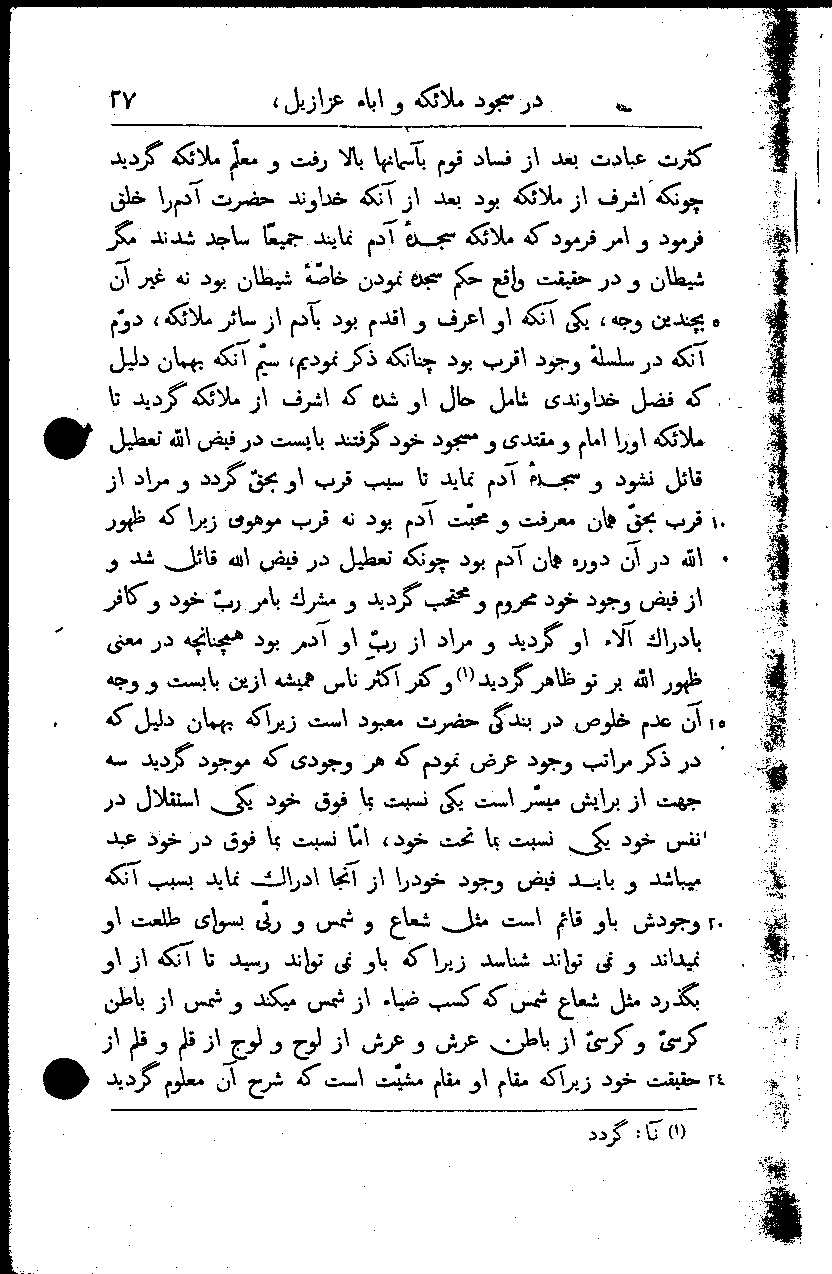 در سجود ملائکه و اباء عزازیل، ۲۷
کثرت عبادت بعد از فساد قوم بآسمانها بالا رفت و معلّم ملائکه گردید
چونکه اشرف از ملائکه بود بعد از آنکه خداوند حضرت آدم‌را خلق
فرمود و امر فرمود که ملائکه سجدهٔ آدم نمایند جمیعًا ساجد شدند مگر
شیطان و در حقیقت واقع حکم سجده نمودن خاصّهٔ شیطان بود نه غیر آن
۵ بچندین وجه، یکی آنکه او اعرف و اقدم بود بآدم از سائر ملائکه، دوّم
آنکه در سلسلهٔ وجود اقرب بود چنانکه ذکر نمودیم، سیّم آنکه بهمان دلیل
که فضل خداوندی شامل حال او شده که اشرف از ملائکه گردید تا
ملائکه اورا امام و مقتدی و مسجود خود گرفتند بایست در فیض الله تعطیل
قائل نشود و سجدهٔ آدم نماید تا سبب قرب او بحقّ گردد و مراد از
۱۰ قرب بحقّ همان معرفت و محبّت آدم بود نه قرب موهوی زیرا که ظهور
الله در آن دوره همان آدم بود چونکه تعطیل در فیض الله قائل شد و
از فیض وجود خود محروم و محتجب گردید و مشرك بامر ربّ خود و کافر
بادراك آلاء او گردید و مراد از ربّ او آدم بود همچنانچه در معنی
ظهور الله بر تو ظاهر گردید(۱) و کفر اکثر ناس همیشه ازین بابست و وجه
۱۵ آن عدم خلوص در بندگی حضرت معبود است زیراکه بهمان دلیل که
در ذکر مراتب وجود عرض نمودم که هر وجودی که موجود گردید سه
جهت از برایش میسّر است یکی نسبت بما فوق خود یکی استقلال در
نفس خود یکی نسبت بما تحت خود، امّا نسبت بما فوق در خود عبد
میباشد و باید فیض وجود خودرا از آنجا ادراك نماید بسبب آنکه
۲۰ وجودش باو قائم است مثل شعاع و شمس و ربّی بسوای طلعت او
نمیداند و نمی تواند شناسد زیرا که باو نمی تواند رسید تا آنکه از او
بگذرد مثل شعاع شمس که کسب ضیاء از شمس میکند و شمس از باطن
کرسیّ و کرسیّ از باطن عرش و عرش از لوح و لوح از قلم و قلم از
۲٤ حقیقت خود زیراکه مقام او مقام مشیّت است که شرح آن معلوم گردید
(۱) نآ: گردد